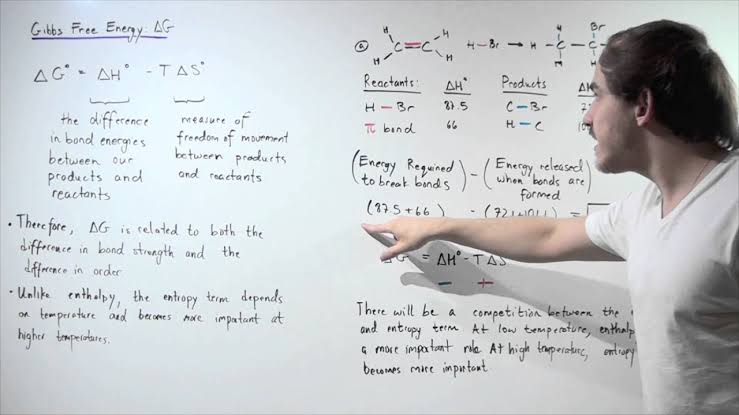 Gibbs Free Energy: ΔG
ΔG° = ΔH° - TΔS°
the difference
in bond energies
between our
products and
reactants
measure of
freedom of movement
between products
and reactants
• Therefore, ΔG is related to both the
difference in bond strength and the
difference in order
• Unlike enthalpy, the entropy term depends
on temperature and becomes more important at
higher temperatures.
a
H H
C=C
H H
H-Br → H-C-C
H Br
Reactants: ΔH° Products ΔH
H-Br 87.5 C-Br
π bond 66 H-C
(Energy Required
to break bonds) - (Energy released
when bonds are
formed
(87.5+66) - (72+101) =
ΔG° = ΔH° - TΔS
There will be a competition between the
and entropy term. At low temperature,
a more important role. At high temperature, entropy
becomes more important.